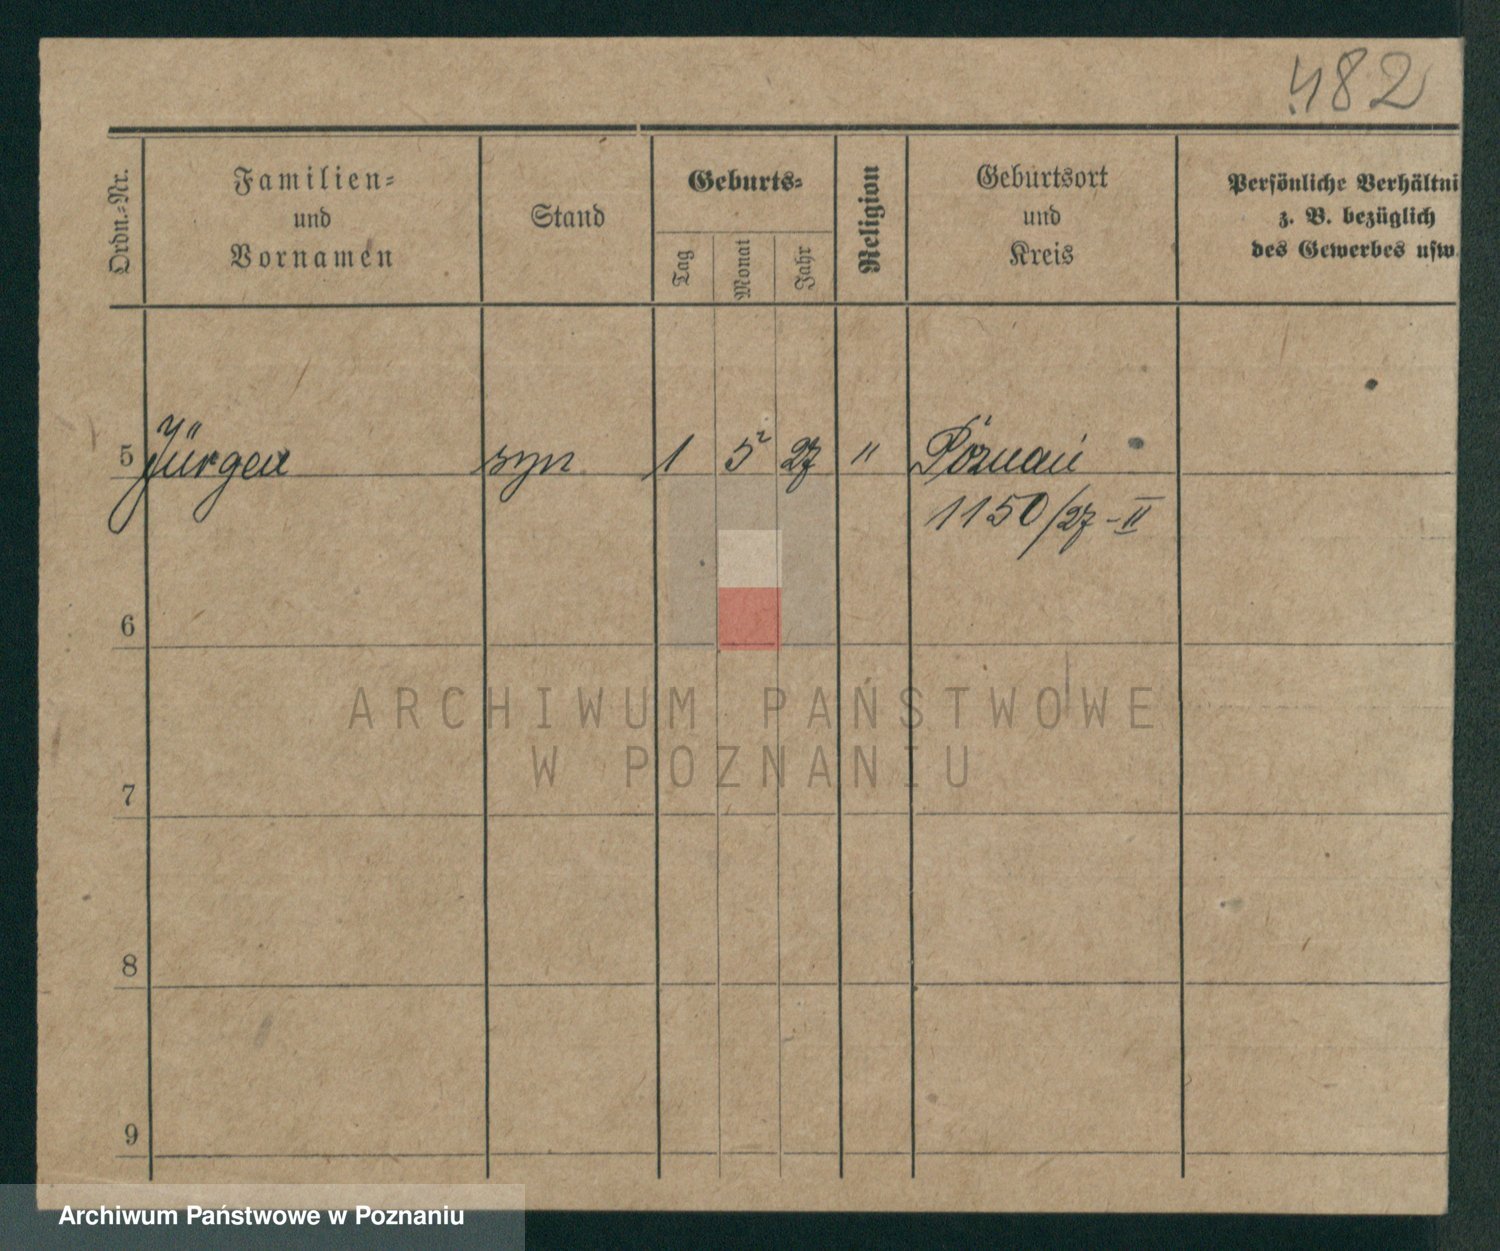 482
Ordn.-Nr.
Familien-
und
Vornamen
Stand
Geburts-
Tag
Monat
Jahr
Religion
Geburtsort
und
Kreis
Persönliche Verhältni
z. B. bezüglich
des Gewerbes usw.
5 Jürgen syn 1 5 27 " Poznań
1150/27-II
6
7
8
9
ARCHIWUM PAŃSTWOWE
W POZNANIU
Archiwum Państwowe w Poznaniu